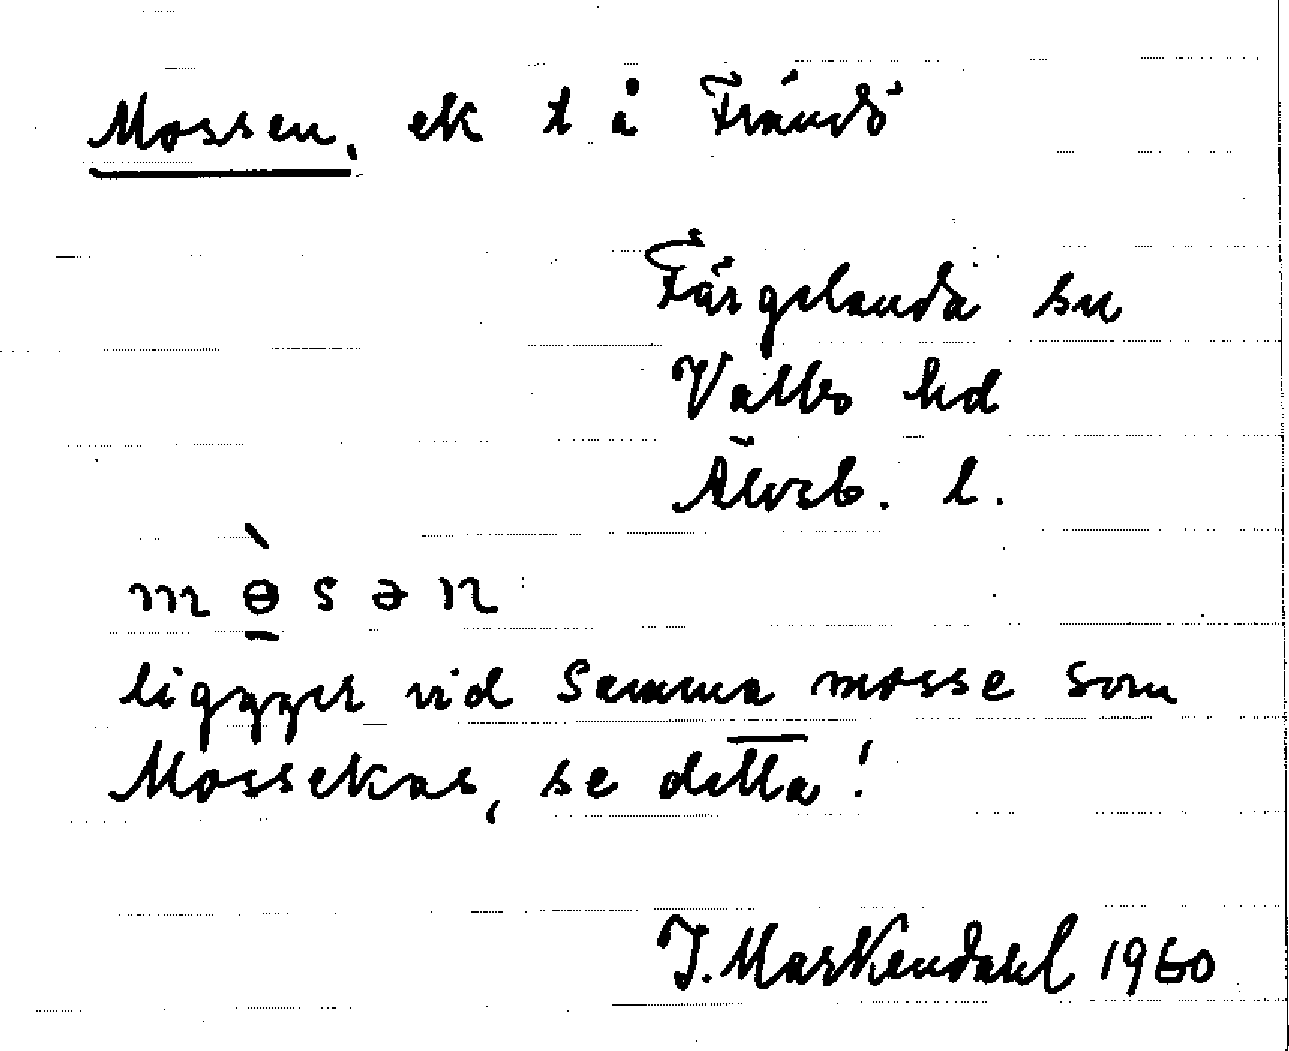 Mossen, ek t å Frändö
Färgelanda sn
Valbo hd
Älvsb. l.
mɵ̀sən
ligger vid samma mosse som
Mossekas, se detta!
J. Markendahl 1960